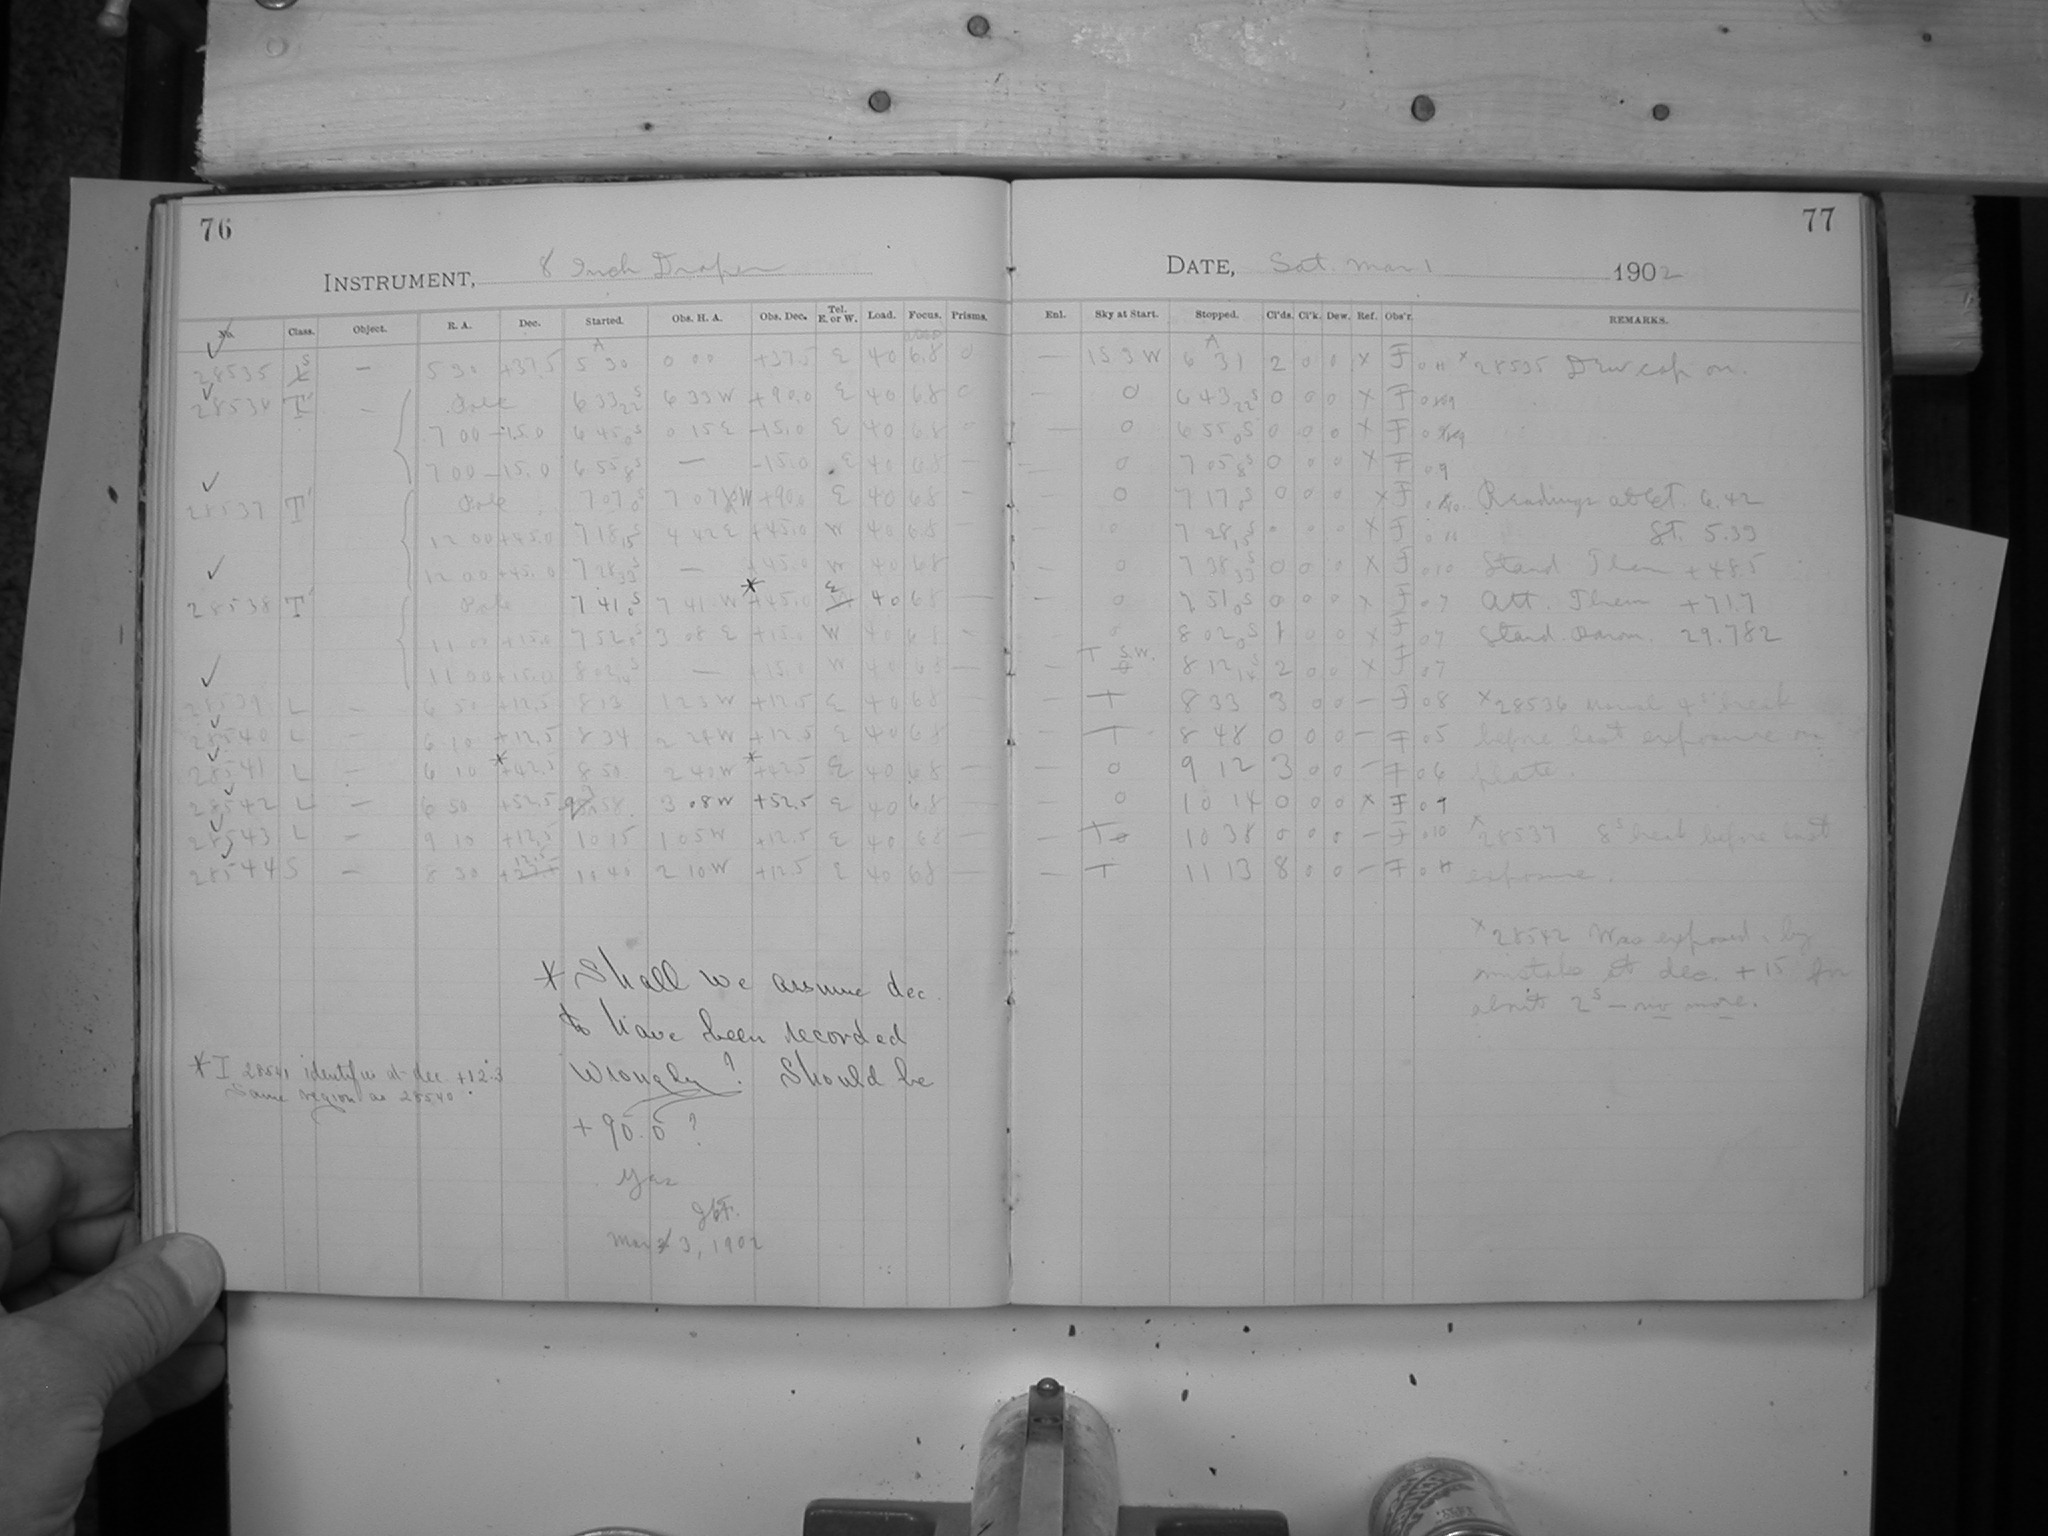 76
77
INSTRUMENT, 8 Inch Draper
DATE, Sat. Mar 1 1902
No. Class. Object. R. A. Dec. Started. Obs. H. A. Obs. Dec. Tel. E. or W. Load. Focus. Prisms. Enl. Sky at Start. Stopped. Cl'ds. Cl'k. Dew. Ref. Obs'r. REMARKS.
28535 S — 5 30 +37.5 5 30 0 00 +37.5 E 40 6.8 0 — 15 3 W 6 31 2 0 0 x F x 28535 Dew cap on.
T' — Pole 6 33 22s 6 33 W +90.0 E 40 6.8 0 0 6 43 22s 0 0 0 x F
7 00 -15.0 6 45 0s 0 15 E -15.0 E 40 6.8 — 0 6 55 0s 0 0 0 x F
7 00 -15.0 6 55 8s — -15.0 E 40 6.8 — — 0 7 05 8s 0 0 0 x F 09
28537 T' Pole 7 07 0s +90.0 E 40 6.8 — 0 7 17 0s 0 0 0 x F Readings at St. 6.42
12 00 +45.0 7 18 15s 4 42 E +45.0 W 40 6.8 — 0 7 28 15s 0 0 0 x F St. 5.39
12 00 +45.0 7 28 33s — +45.0 W 40 6.8 — 0 7 38 33s 0 0 0 x F 010 Stand Them +48.5
28538 T' Pole 7 41 0s 7 41 W * +45.0 E 40 6.8 — — 0 7 51 0s 0 0 0 x F 07 Att. Them +71.7
11 00 +15.0 7 52 0s 3 08 E +15.0 W 40 6.8 — 0 8 02 0s 1 0 0 x F 07 Stand. Barom. 29.782
11 00 +15.0 8 02 14s — +15.0 W 40 6.8 — — T S.W. 8 12 14s 2 0 0 x F 07
28539 L — 6 50 +12.5 8 13 1 23 W +12.5 E 40 6.8 — — T 8 33 3 0 0 — F 08 x 28536 usual 4s break
28540 L — 6 10 +12.5 8 34 2 24 W +12.5 E 40 6.8 — T 8 48 0 0 0 — F 05 before last exposure on
28541 L — 6 10 * +42.5 8 50 2 40 W * +42.5 E 40 6.8 — — 0 9 12 3 0 0 — F 06 plate.
28542 L — 6 50 +52.5 9 58 3 08 W +52.5 E 40 6.8 — 0 10 14 0 0 0 x F 09
28543 L — 9 10 +12.5 10 15 1 05 W +12.5 E 40 6.8 — — T 10 38 0 0 0 — F 010 x 28537 8s break before last
28544 S — 8 30 12.5 10 40 2 10 W +12.5 E 40 6.8 — — T 11 13 8 0 0 — F exposure.
x 28542 Was exposed, by
mistake at dec. +15 for
about 2s — no more.
* Shall we assume dec.
to have been recorded
wrongly? Should be
+90.0?
Yes
Mar 3, 1902
* I 28541 identifies at dec. +12.3
Same region as 28540.